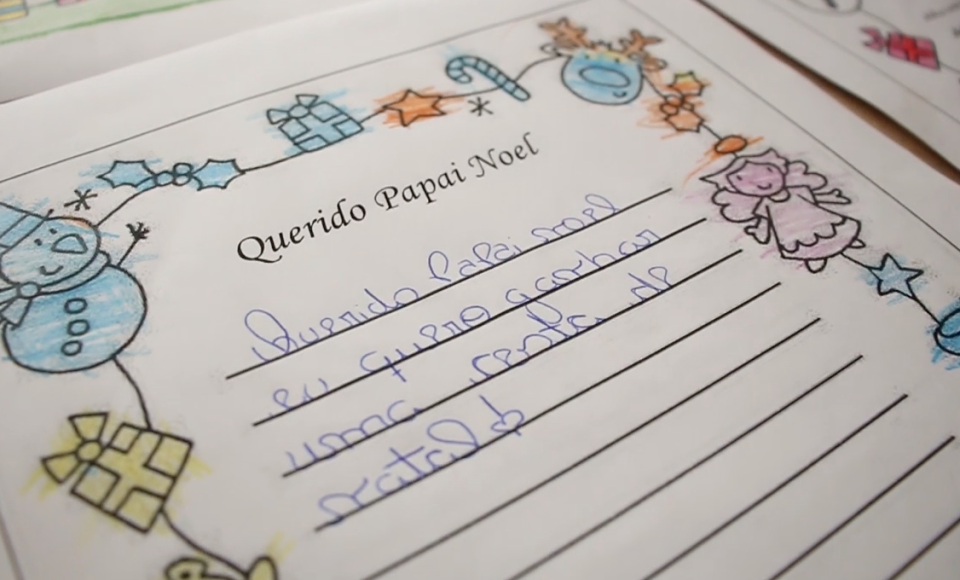 Querido Papai Noel
Querido Papai noel
eu quero ganhar
uma cesta de
natal